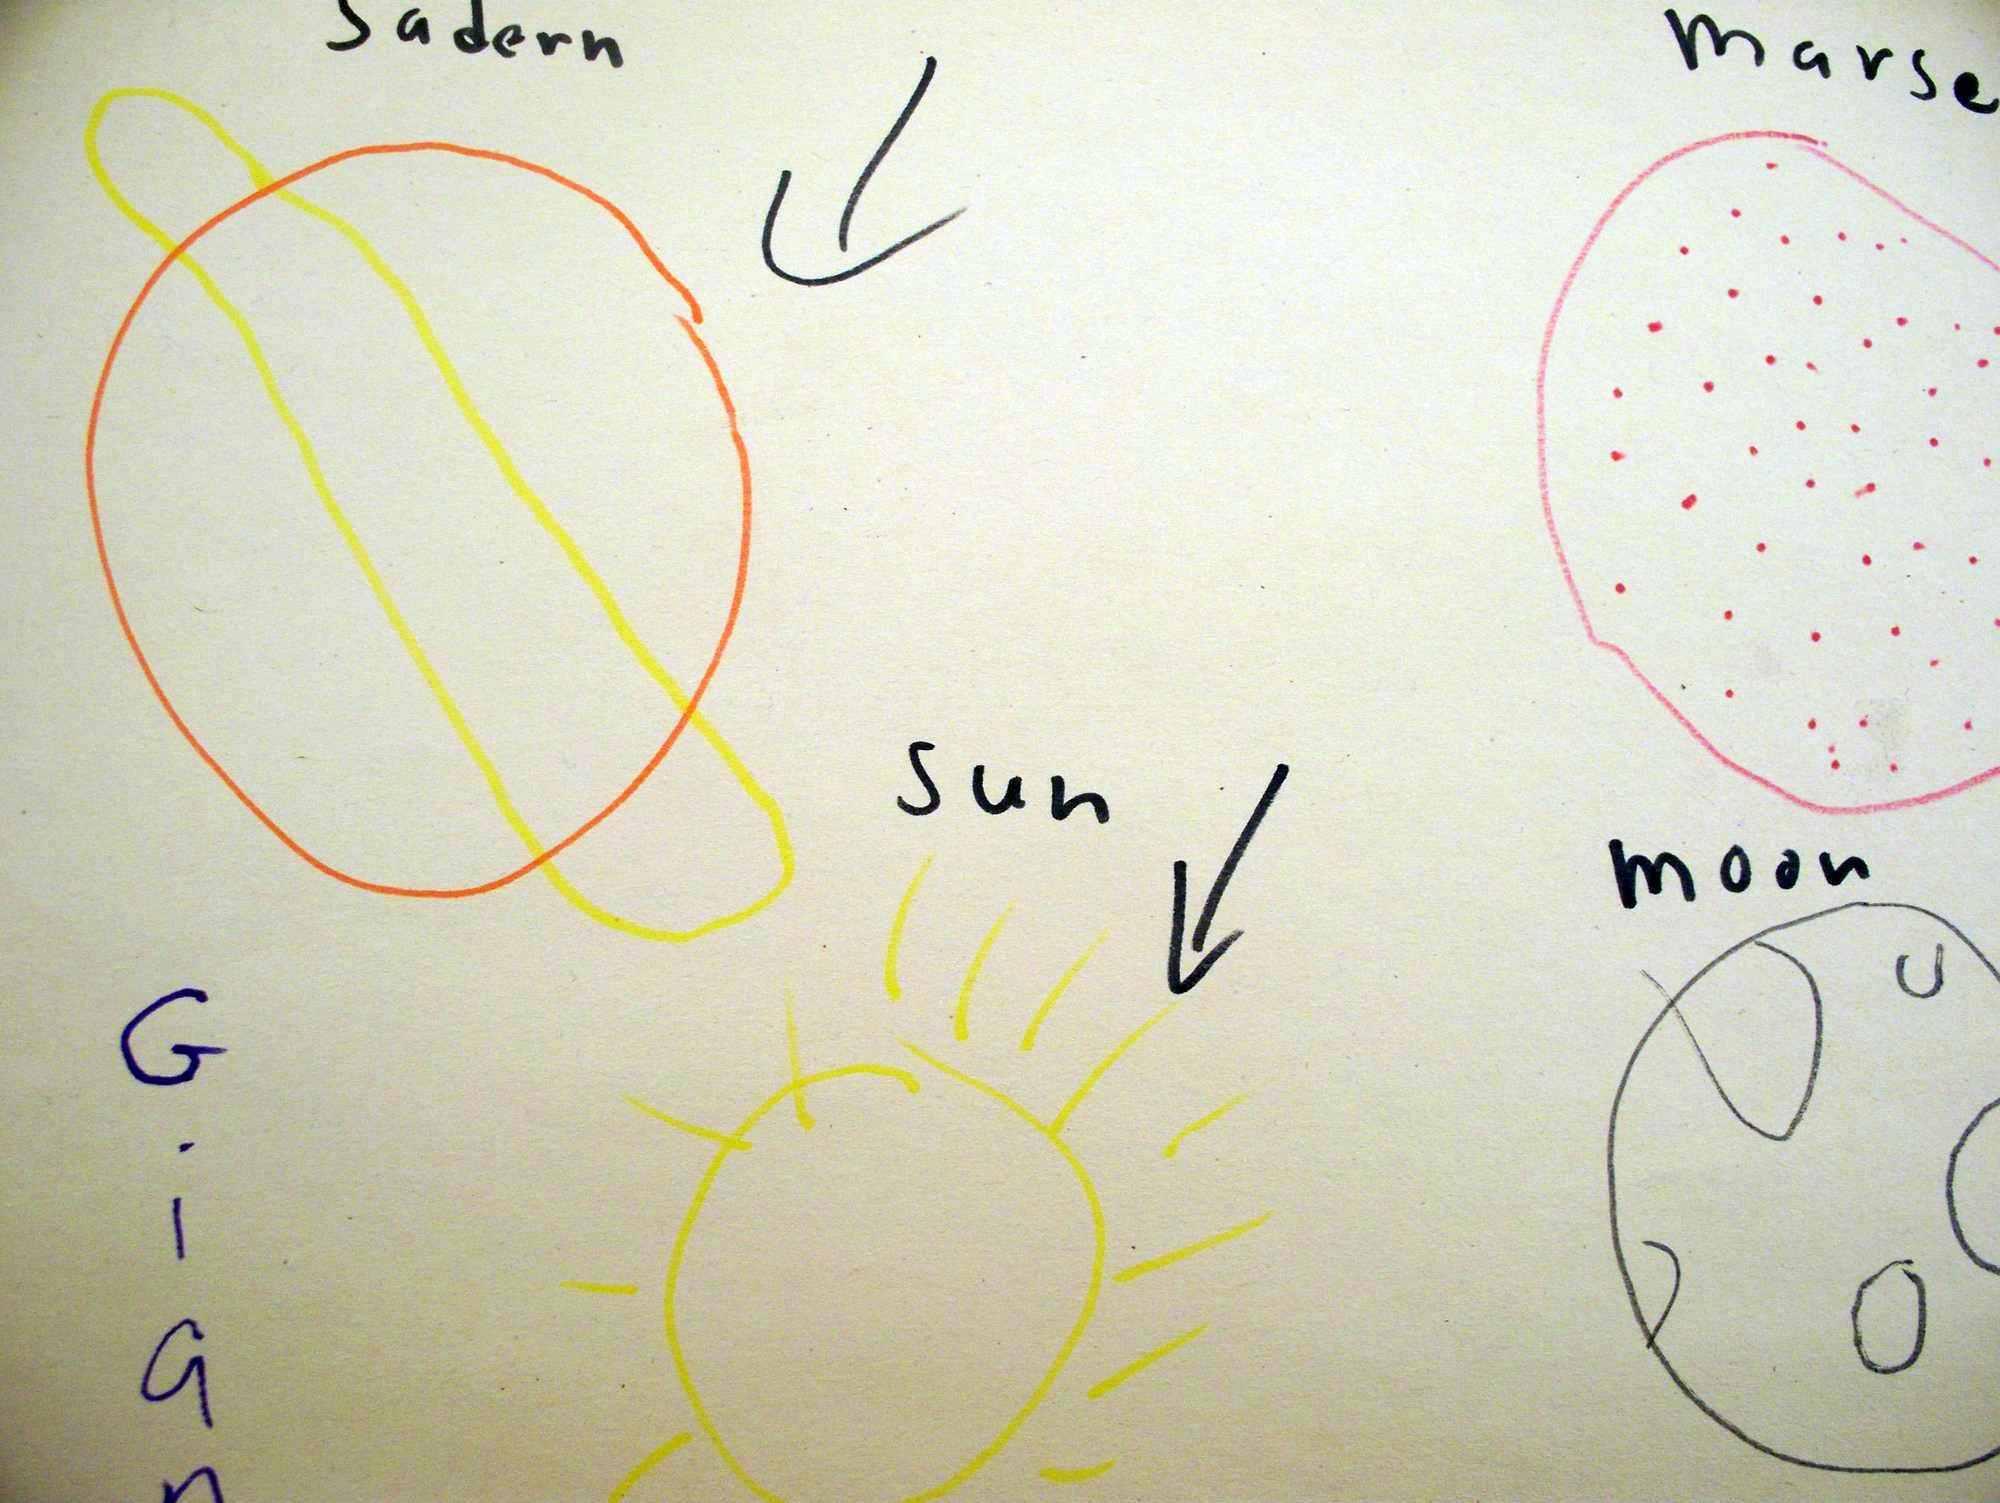 Sadern
Marse
Sun
moon
G
i
a
n